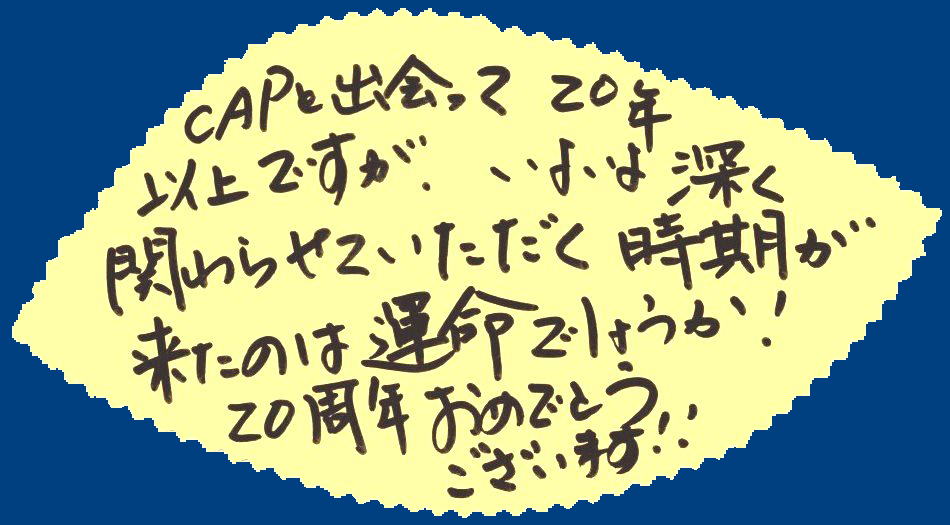 CAPと出会って 20年
以上ですが、いよいよ深く
関わらせていただく時期が
来たのは運命でしょうか!
20周年おめでとう
ございます!!